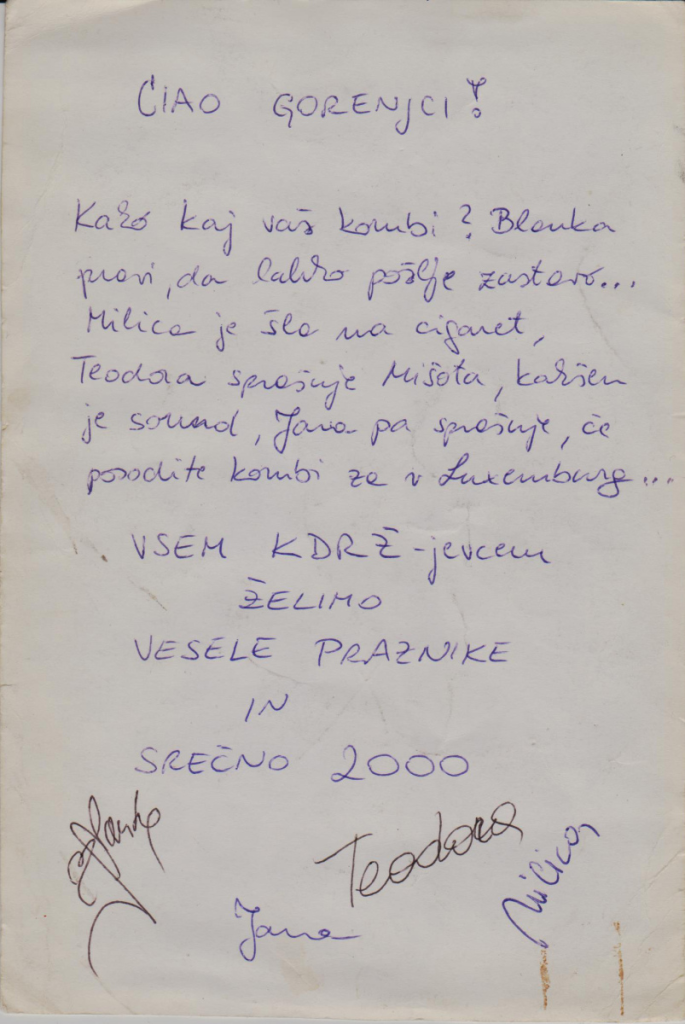 ČIAO GORENJCI!
Kako kaj vaš kombi? Blanka
pravi, da lahko pošlje zastavo...
Milica je šla na cigaret,
Teodora sprašuje Mišota, kakšen
je sound, Jana pa sprašuje, če
posodite kombi za v Luxemburg...
VSEM KDRŽ-jevcem
ŽELIMO
VESELE PRAZNIKE
IN
SREČNO 2000
Blanka
Teodora
Milica
Jana